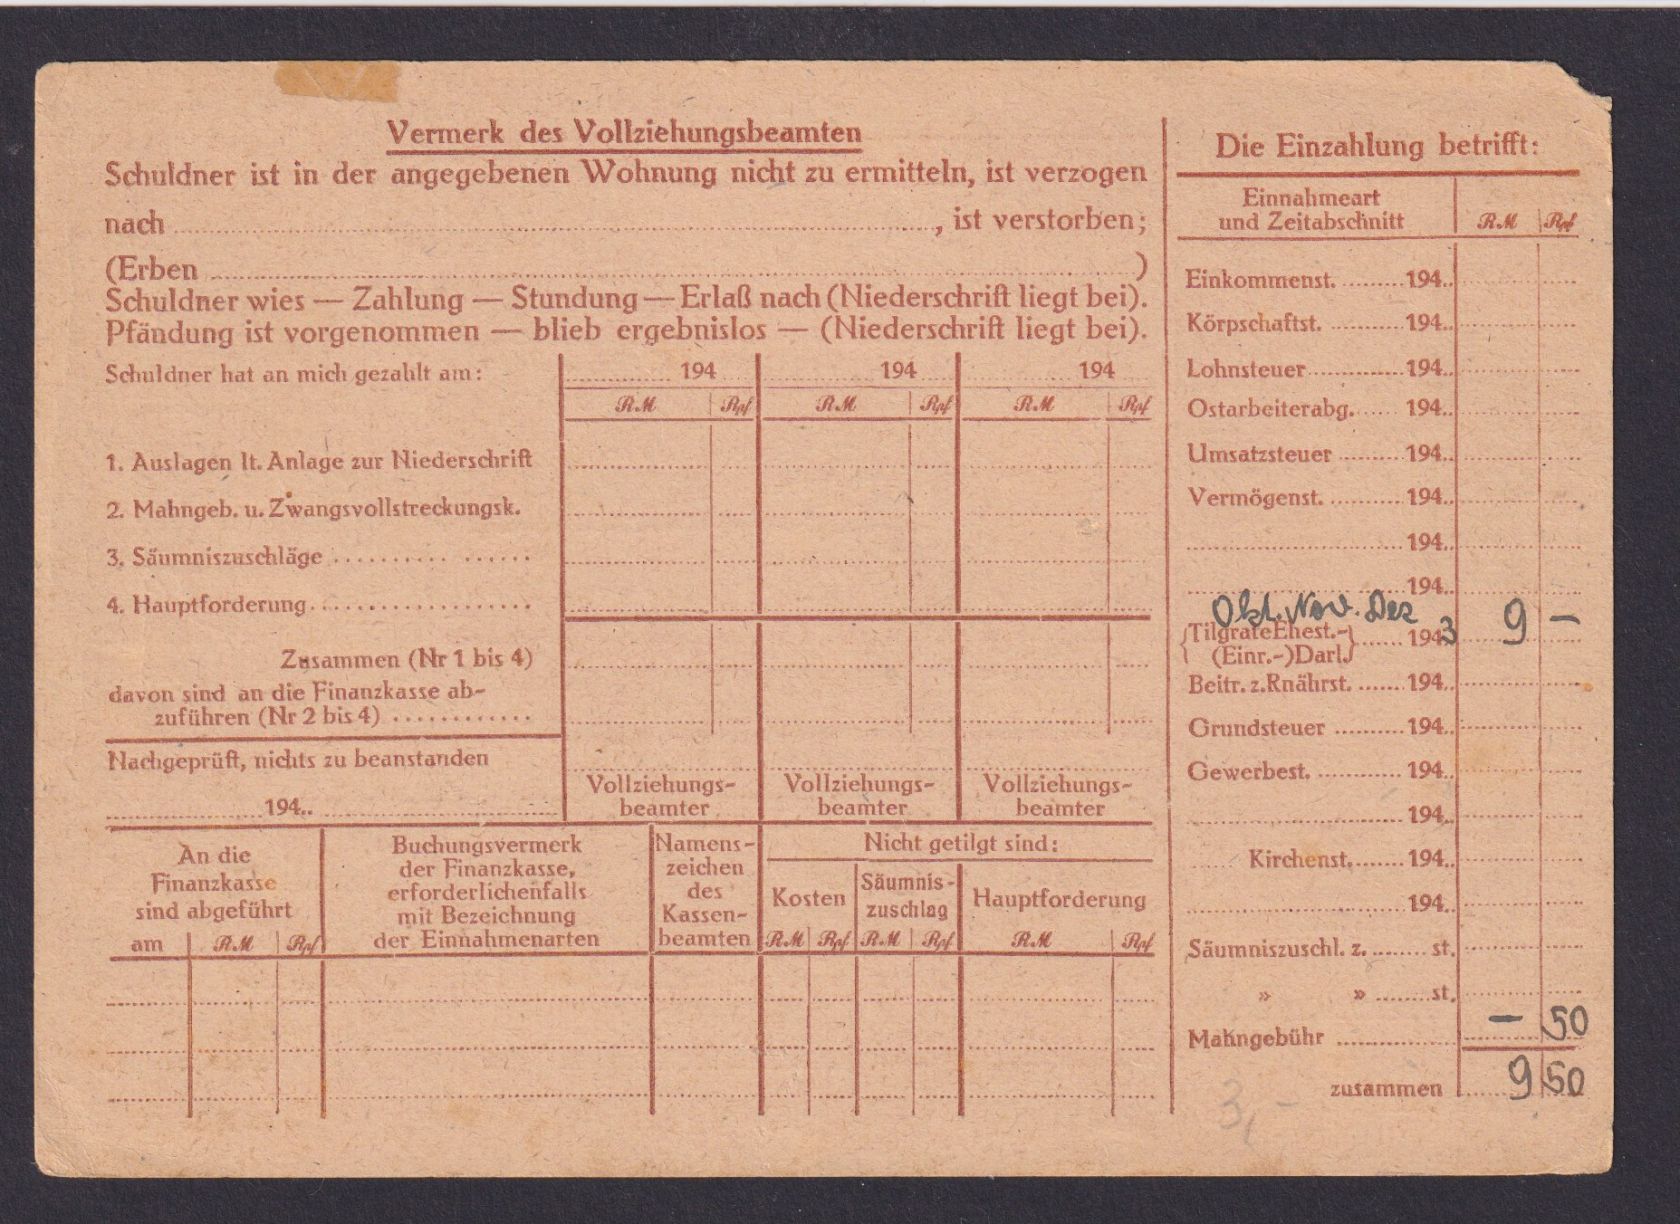 Vermerk des Vollziehungsbeamten
Schuldner ist in der angegebenen Wohnung nicht zu ermitteln, ist verzogen
nach ........................................, ist verstorben;
(Erben ........................................)
Schuldner wies — Zahlung — Stundung — Erlaß nach (Niederschrift liegt bei).
Pfändung ist vorgenommen — blieb ergebnislos — (Niederschrift liegt bei).
Schuldner hat an mich gezahlt am:
............ 194 ............ 194 ............ 194
RM Rpf RM Rpf RM Rpf
1. Auslagen lt. Anlage zur Niederschrift
2. Mahngeb. u. Zwangsvollstreckungsk.
3. Säumniszuschläge ............
4. Hauptforderung ............
Zusammen (Nr 1 bis 4)
davon sind an die Finanzkasse ab-
zuführen (Nr 2 bis 4) ............
Nachgeprüft, nichts zu beanstanden
............194.. ............
Vollziehungs-
beamter
Vollziehungs-
beamter
Vollziehungs-
beamter
An die
Finanzkasse
sind abgeführt
am RM Rpf
Buchungsvermerk
der Finanzkasse,
erforderlichenfalls
mit Bezeichnung
der Einnahmenarten
Namens-
zeichen
des
Kassen-
beamten
Nicht getilgt sind:
Kosten
RM Rpf
Säumnis-
zuschlag
RM Rpf
Hauptforderung
RM Rpf
Die Einzahlung betrifft:
Einnahmeart
und Zeitabschnitt
RM Rpf
Einkommenst. ..........194..
Körpschaftst. ..........194..
Lohnsteuer ..........194..
Ostarbeiterabg. ......194..
Umsatzsteuer ..........194..
Vermögenst. ..........194..
..............................194..
..............................194..
Okt. Nov. Dez
{TilgrateEhest.-} ...... 1943 9 —
(Einr.-)Darl.
Beitr. z. Rnährst. .......194..
Grundsteuer ...........194..
Gewerbest. .............194..
..............................194..
Kirchenst........194..
..............................194..
Säumniszuschl. z. ........ st.
» » ........st.
Mahngebühr ............ — 50
zusammen 9 50
3,-